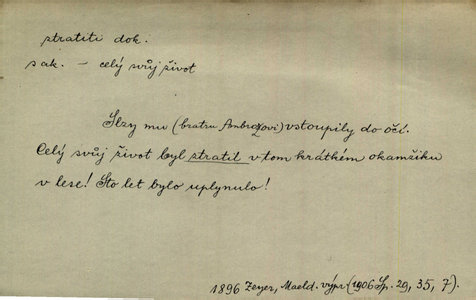 stratiti dok.
s ak. – celý svůj život
Slzy mu (bratru Ambrožovi) vstoupily do očí.
Celý svůj život byl stratil v tom krátkém okamžiku
v lese! Sto let bylo uplynulo!
1896 Zeyer, Maeld. výpr. (1906 Sp. 29, 35, 7).